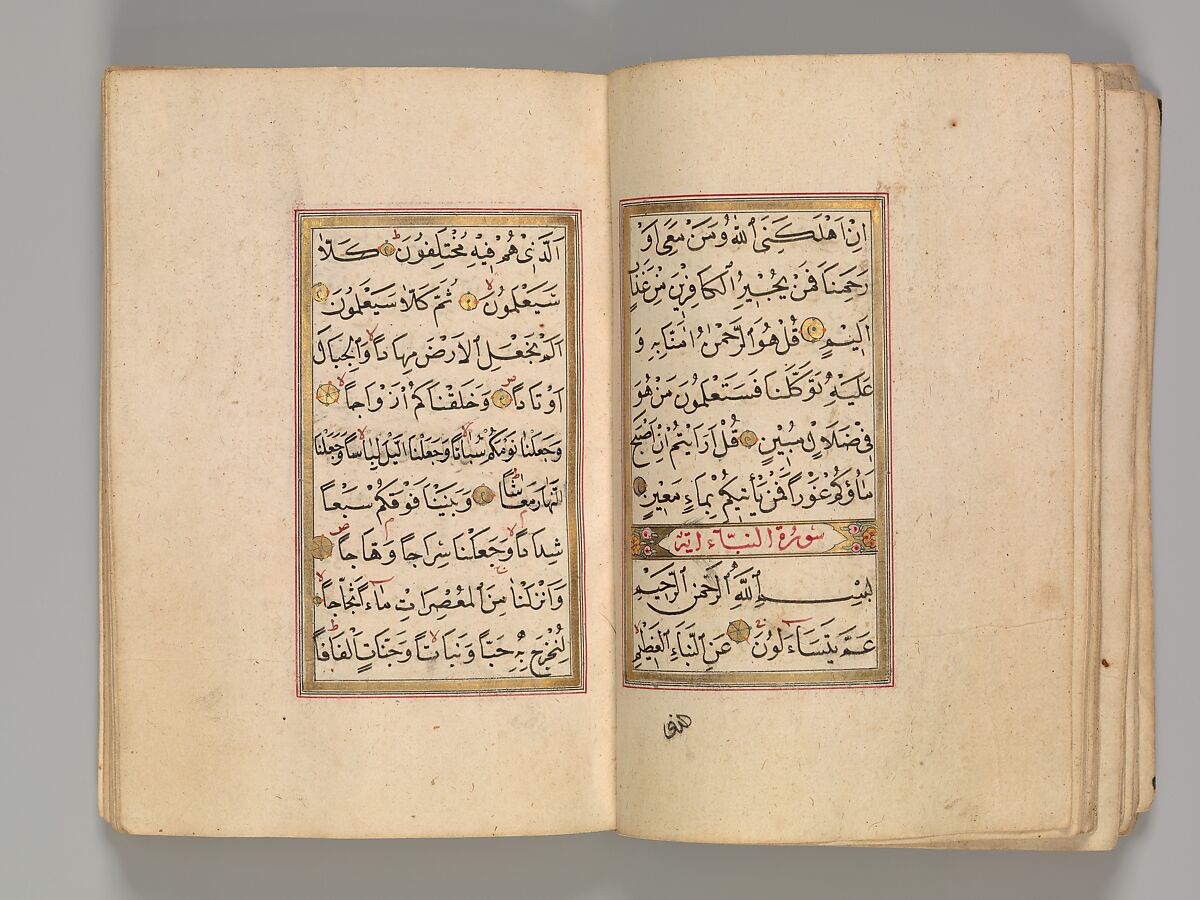 اِنْ اَهْلَكَنِىَ اللّٰهُ وَمَنْ مَعِىَ اَوْ
رَحِمَنَا فَمَنْ يُجٖيرُ الْكَافِرٖينَ مِنْ عَذَابٍ
اَلٖيمٍ قُلْ هُوَ الرَّحْمٰنُ اٰمَنَّا بِهٖ وَ
عَلَيْهِ تَوَكَّلْنَا فَسَتَعْلَمُونَ مَنْ هُوَ
فٖى ضَلَالٍ مُبٖينٍ قُلْ اَرَاَيْتُمْ اِنْ اَصْبَحَ
مَاؤُكُمْ غَوْرًا فَمَنْ يَأْتٖيكُمْ بِمَاءٍ مَعٖينٍ
سُورَةُ النَّبَاءِ اٰيَة
بِسْمِ اللّٰهِ الرَّحْمٰنِ الرَّحٖيمِ
عَمَّ يَتَسَاءَلُونَ عَنِ النَّبَاءِ الْعَظٖيمِ
الذى
اَلَّذٖى هُمْ فٖيهِ مُخْتَلِفُونَ كَلَّا
سَيَعْلَمُونَ ثُمَّ كَلَّا سَيَعْلَمُونَ
اَلَمْ نَجْعَلِ الْاَرْضَ مِهَادًا وَالْجِبَالَ
اَوْتَادًا وَخَلَقْنَاكُمْ اَزْوَاجًا
وَجَعَلْنَا نَوْمَكُمْ سُبَاتًا وَجَعَلْنَا الَّيْلَ لِبَاسًا وَجَعَلْنَا
النَّهَارَ مَعَاشًا وَبَنَيْنَا فَوْقَكُمْ سَبْعًا
شِدَادًا وَجَعَلْنَا سِرَاجًا وَهَّاجًا
وَاَنْزَلْنَا مِنَ الْمُعْصِرَاتِ مَاءً ثَجَّاجًا
لِنُخْرِجَ بِهٖ حَبًّا وَنَبَاتًا وَجَنَّاتٍ اَلْفَافًا